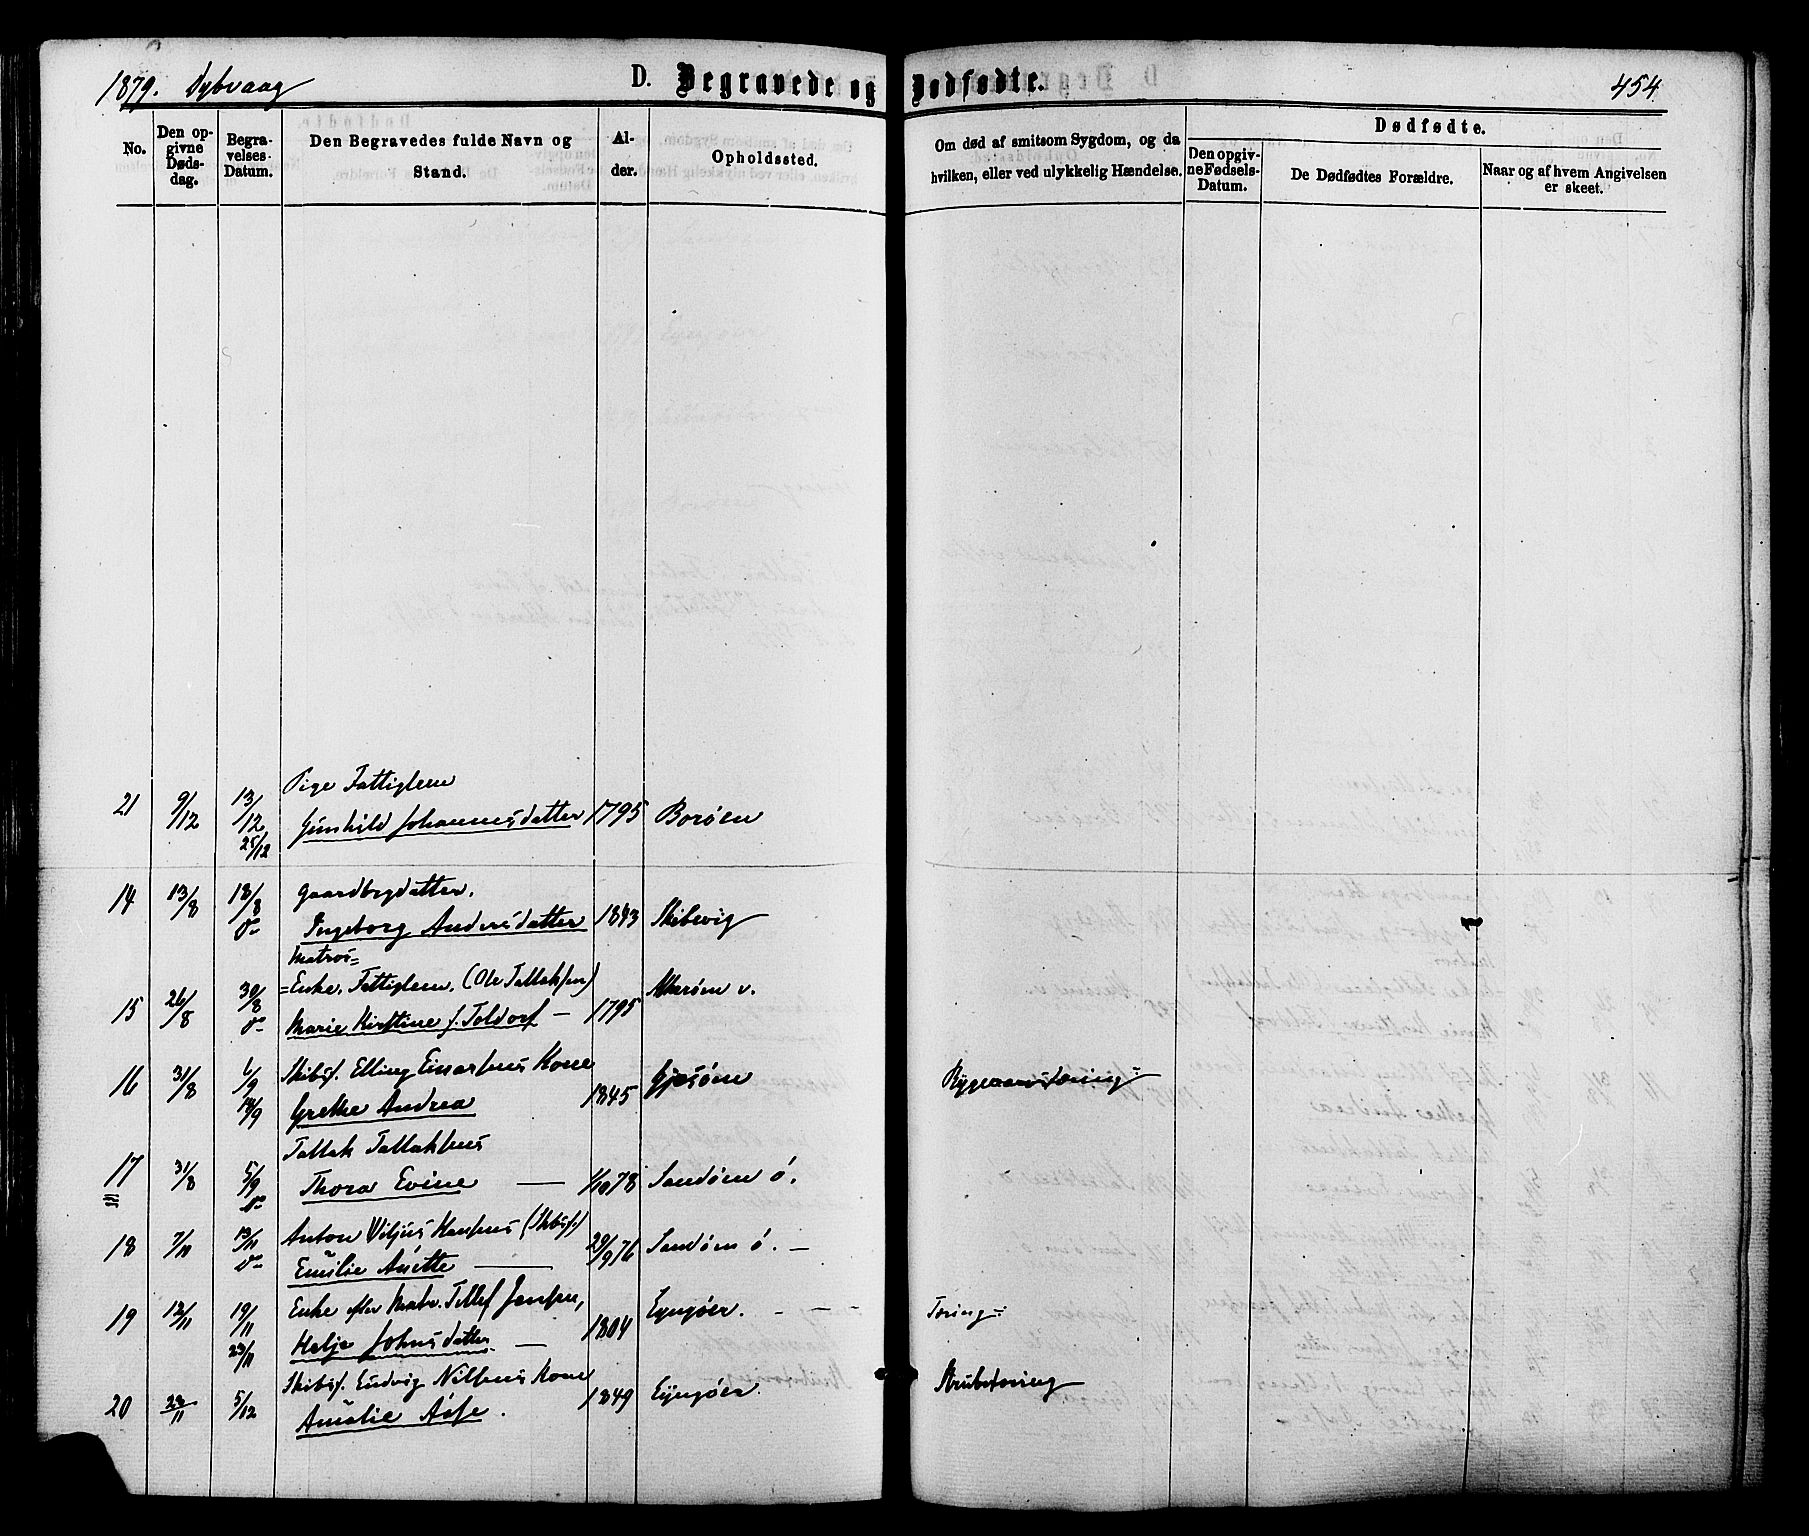 1879. Dybvaag
D. Begravede og Dødfødte.
454
No.
Den opgivne Dødsdag.
Begravelses-Datum.
Den Begravedes fulde Navn og Stand.
Alder.
Opholdssted.
Om død af smitsom Sygdom, og da hvilken, eller ved ulykkelig Hændelse.
Dødfødte.
Den opgivne Fødsels-Datum.
De Dødfødtes Forældre.
Naar og af hvem Angivelsen er skeet.
Pige Fattiglem
21 9/12 13/12 Gunhild Johannesdatter 1795 Borøen
25/12
14 13/8 18/8 Gaardbrgdatter.
Ingeborg Andersdatter 1843 Skibevig
Matros=
15 26/8 30/8 =Enke, Fattiglem. (Ole Tallaksen) 1795 Askerøen v.
Marie Kirstine f. Toldorf —
16 31/8 6/9 Skibsf. Elling Einarsens Kone 1845 Gjesøen
14/9 Grethe Andrea
17 31/8 5/9 Tallak Tallaksens
Thora Evine — 1/10 78 Sandøen ø.
18 7/11 13/11 Anton Viljus Hansens (Skbsf.) 29/9 76 Sandøen ø. —
Emilie Anette —
19 12/11 19/11 Enke efter Matr. Tellef Jensen, 1804 Lyngøer. - - - Tæring
23/11 Helje Johnsdatter —
20 29/11 5/12 Skibsf. Ludvig Nilsens Kone 1849 Lyngøer. Strubetæring
Amalie Aase.